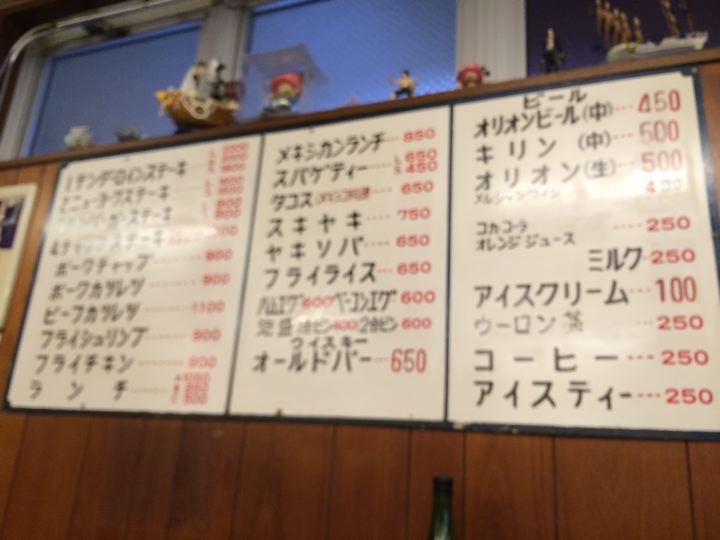 テンダーロインステーキ
ニューヨークステーキ
ハンバーガーステーキ
チャップステーキ
ポークチャップ 900
ポークカツレツ 900
ビーフカツレツ 1100
フライシュリンプ 900
フライチキン 900
ランチ
メキシカンランチ 850
スパゲティー L 650 S 450
タコス(メキシコ料理) 650
スキヤキ 750
ヤキソバ 650
フライライス 650
ハムエグ 600 ベーコンエグ 600
泡盛 1合ビン 400 2合ビン 600
ウイスキー
オールドバー 650
ビール
オリオンビール(中) 450
キリン(中) 500
オリオン(生) 500
メルシャンワイン 400
コカコーラ 250
オレンジジュース
ミルク 250
アイスクリーム 100
ウーロン茶 250
コーヒー 250
アイスティー 250